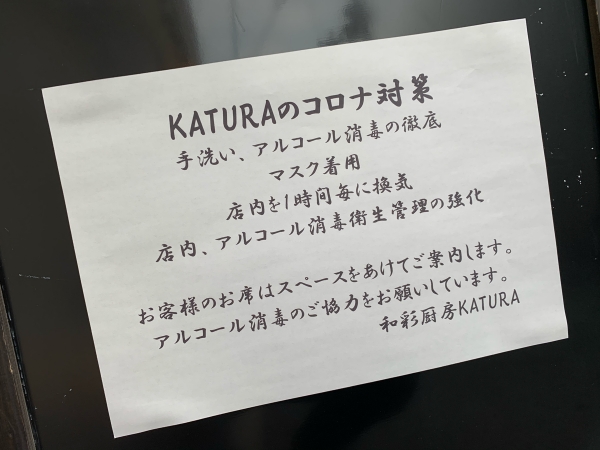 KATURAのコロナ対策
手洗い、アルコール消毒の徹底
マスク着用
店内を1時間毎に換気
店内、アルコール消毒衛生管理の強化
お客様のお席はスペースをあけてご案内します。
アルコール消毒のご協力をお願いしています。
和彩厨房KATURA